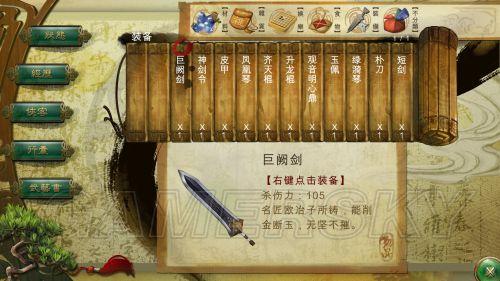 狀態
經歷
俠客
行囊
武藝書
不分類
装备
1/1
巨阙剑 X1
神剑令 X1
皮甲 X1
凤凰琴 X1
齐天棍 X1
升龙棍 X1
观音明心鼎 X1
玉佩 X1
绿漪琴 X1
朴刀 X1
短剑 X1
巨阙剑
【右键点击装备】
杀伤力：105
名匠欧冶子所铸，能削
金断玉，无坚不摧。
GAMERSKY